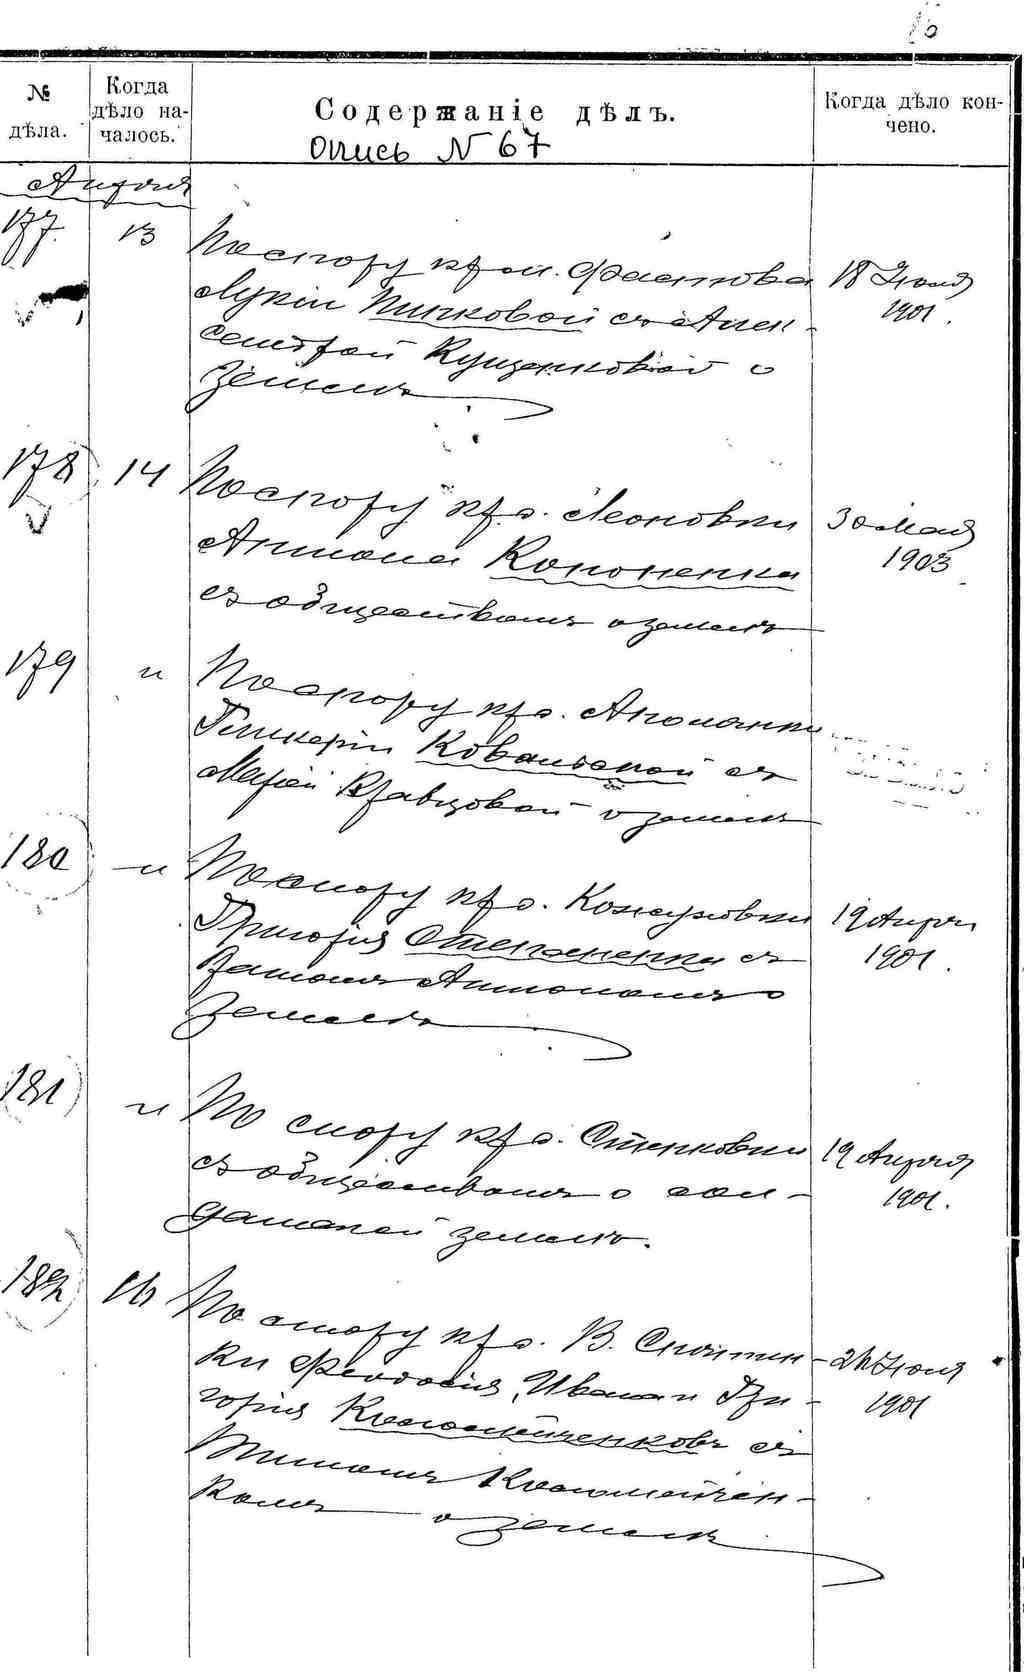 №
дѣла.
Когда
дѣло на-
чалось.
Содержаніе дѣлъ.
Опись N 67
Когда дѣло кон-
чено.
Апрѣля
177. 13
По спору кр. м. Фастова
Лукіи Пинковой съ Алек-
сандрой Кущенковой о
землѣ
18 Іюля
1901.
178 14
По спору кр. д. Леоновки
Антона Кононенка
съ обществомъ о землѣ
30 Мая
1903
179 "
По спору кр. д.
Гликеріи Ковальской съ
Маріей Кравцовой о землѣ
180 "
По спору кр. с. Кожуховки
Григорія Степаненка съ
Зятемъ Антономъ о
землѣ
19 Апрѣля
1901.
181 "
По спору кр. с.
съ обществомъ о сол-
датской землѣ.
19 Апрѣля
1901.
182 16
По спору кр. с. В. Снитин-
ки Феодосія, Ивана и Гри-
горія Коломійченковъ съ
Коломійчен-
комъ о землѣ
Іюля
1901